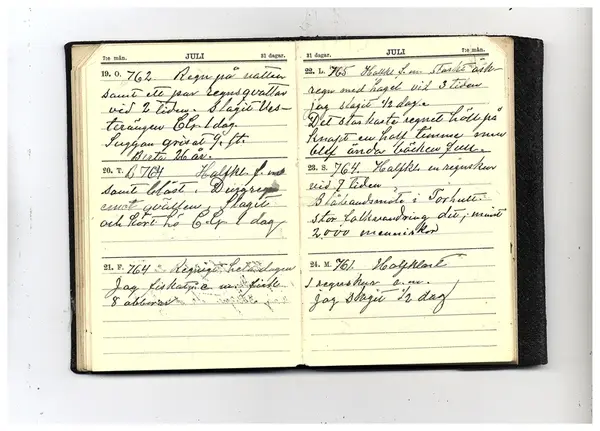 7:e mån. JULI 31 dagar.
19. O. 762. Regn på natten
samt ett par regnsqvättar
vid 2 tiden. Slagit Ves-
terängen C.G. 1 dag.
Suggan grisat 9 st.
Berta 26 år.
20. T. 764 Halfkl. f.m
samt blåst. Duggregn
emot qvällen. Slagit
och kört hö C.G. 1 dag
21. F. 764 Regnigt hela dagen
Jag fiskat e.m. fick
8 abborar
7:e mån. JULI 31 dagar.
22. L. 765 Halfkl f.m. starkt åsk-
regn med hagel vid 3 tiden
jag slagit 1/2 dag.
Det starkaste regnet höll på
knapt en half timme men
blef ända bäcken full.
23. S. 764. Halfkl. en regnskur
vid 7 tiden
Blåbandsmöte i Torhult.
stor folkvandring dit, minst
2000 menniskor
24. M. 761 Halfklart
1 regnskur e.m.
jag slagit 1/2 dag